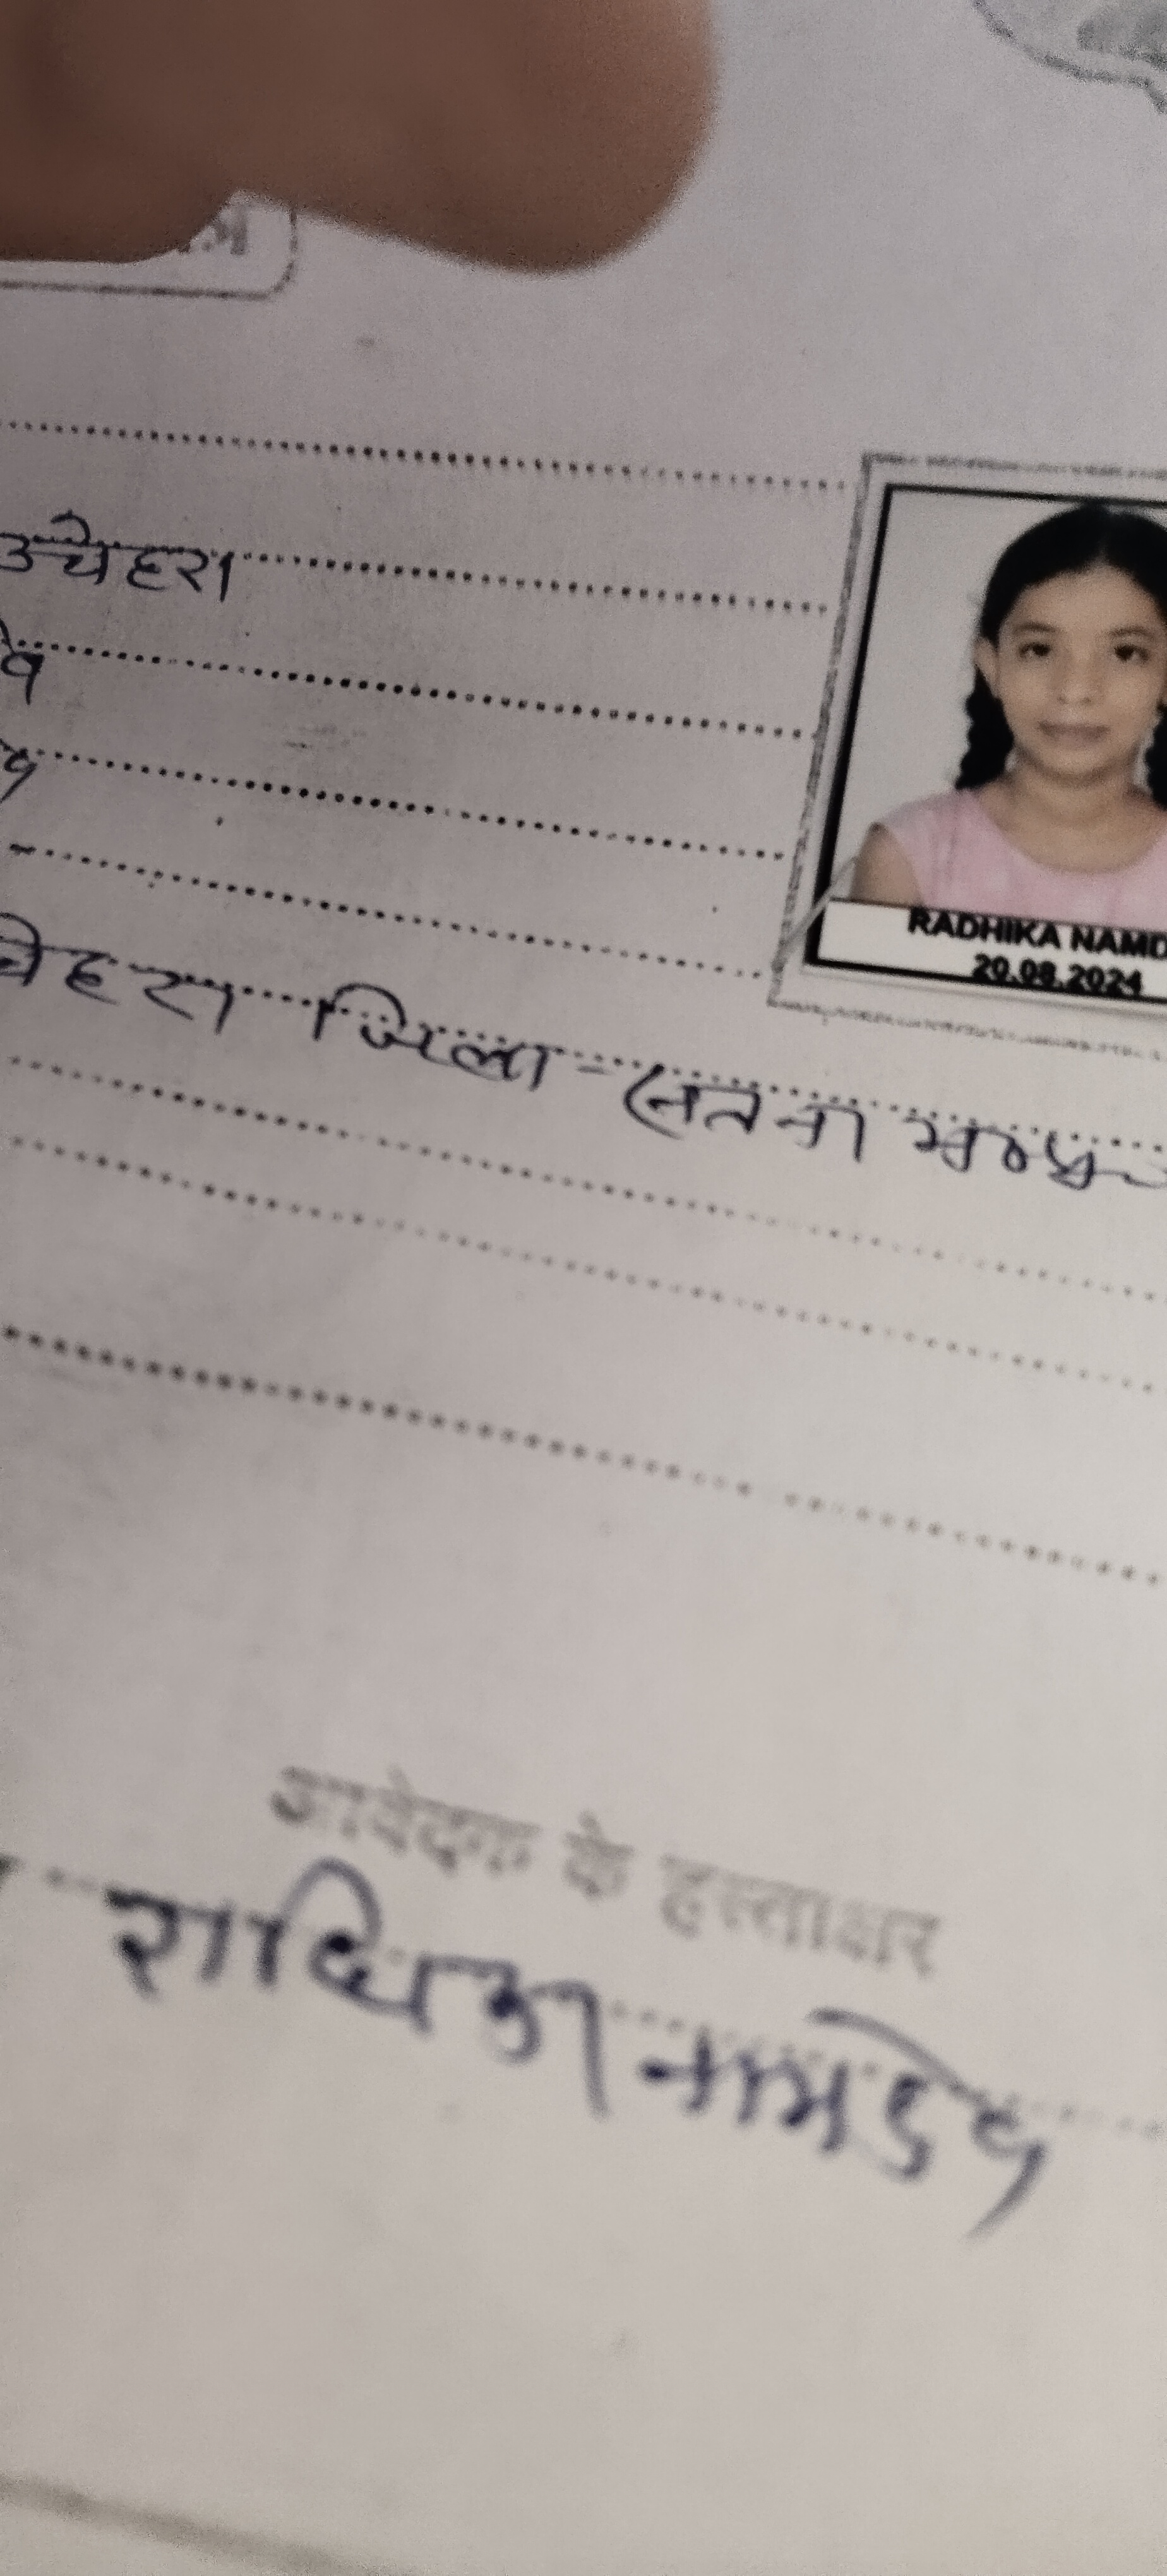 उचेहरा
व
RADHIKA NAMD
20.08.2024
चेहरा जिला - सतना म०प्र०
आवेदक के हस्ताक्षर
राधिका नामदेव